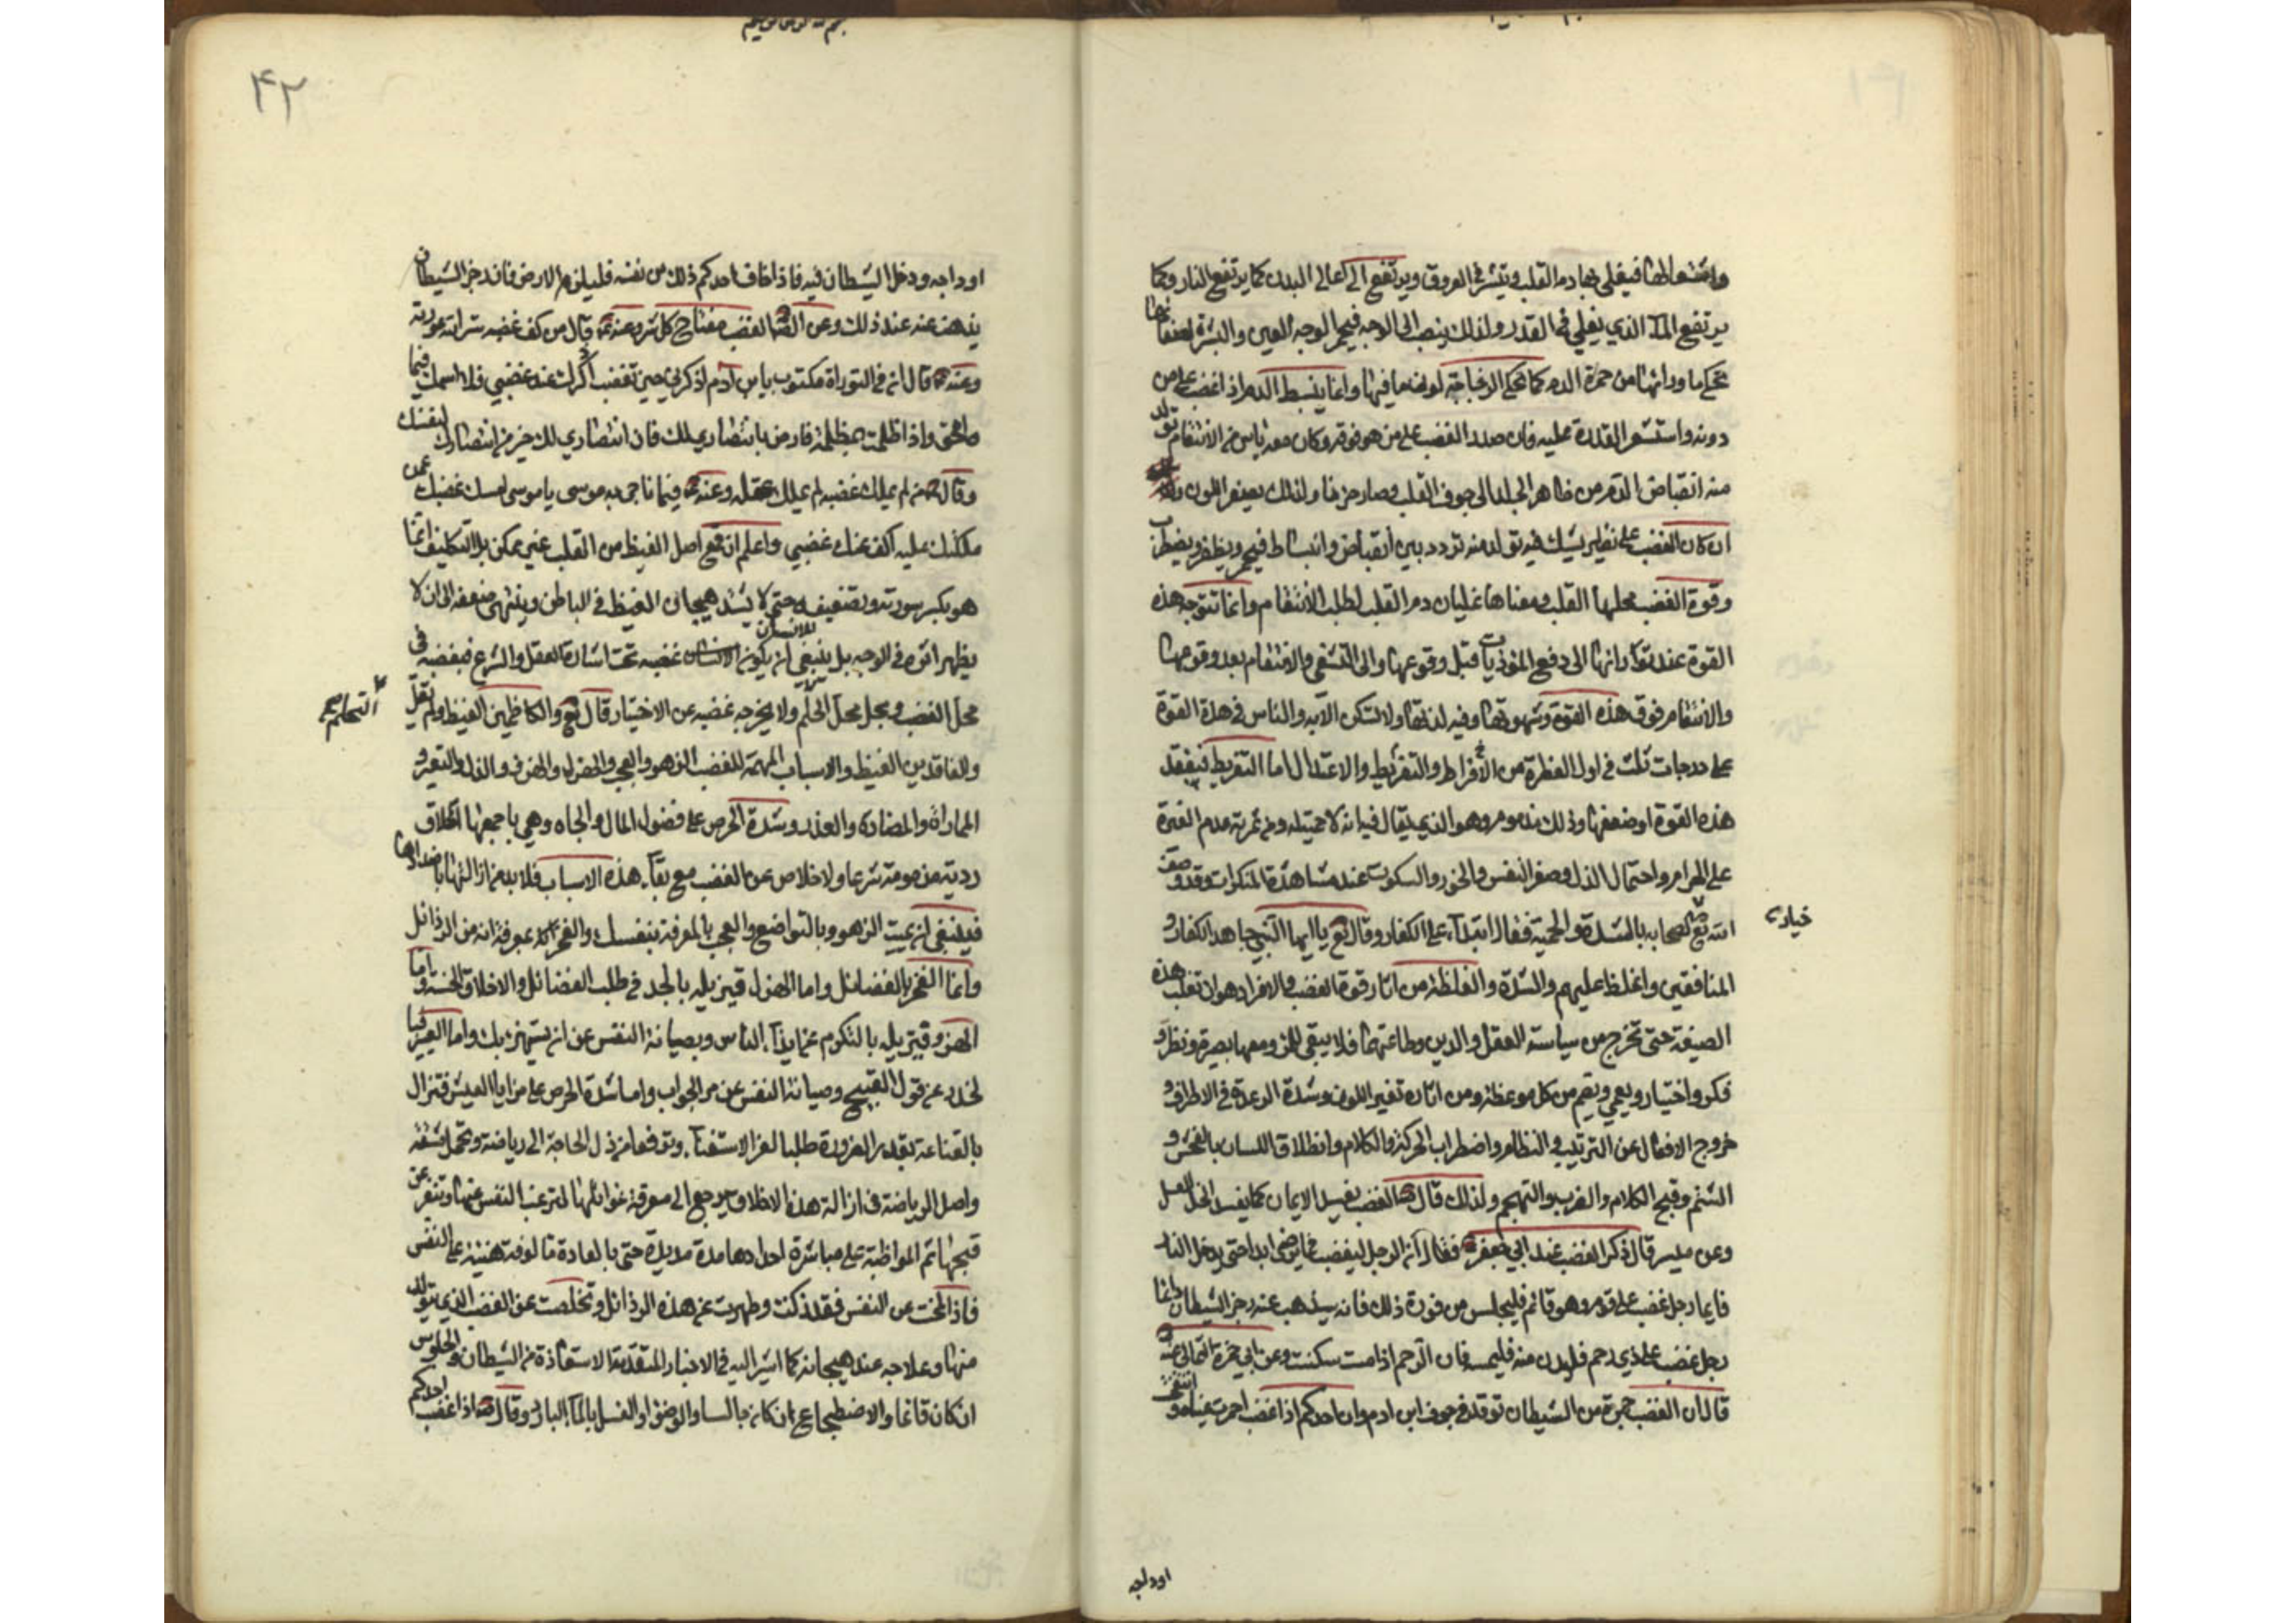 واشتعالها فيغلي بها دم القلب وينتشر في العروق ويرتفع الى اعالي البدن كما يرتفع النار وكما
يرتفع الماء الذي يغلي في القدر ولذلك ينصب الى الوجه فيحمر الوجه والعين والبشرة لصفائها
تحكي ما ورائها من حمرة الدم كما تحكي الزجاجة لون ما فيها وانما ينبسط الدم اذا غضب على من
دونه واستشعر القدرة عليه فان صدر الغضب على من هو فوقه وكان معه ياس من الانتقام تولد
منه انقباض الدم من ظاهر الجلد الى جوف القلب وصار حزنا ولذلك يصفر اللون
ان كان الغضب على نظير يشك فيه تولد منه تردد بين انقباض وانبساط فيحمر ويصفر ويضطرب
وقوة الغضب محلها القلب ومعناها غليان دم القلب لطلب الانتقام وانما تتوجه هذه
القوة عند ثورانها الى دفع الموذيات قبل وقوعها والى التشفي والانتقام بعد وقوعها
والانتقام قوت هذه القوة وشهوتها وفيه لذتها ولا تسكن الا به والناس في هذه القوة
على درجات ثلث في اول الفطرة من الافراط والتفريط والاعتدال اما التفريط فبفقد
هذه القوة او ضعفها وذلك مذموم وهو الذي يقال فيه انه لا حمية له ومن ثمرته عدم الغيرة
على الحرام واحتمال الذل وصغر النفس والخور والسكوت عند مشاهدة المنكرات وقد وصف
خيار
الله تع الصحابه بالشدة والحمية فقال اشداء على الكفار وقال تع يا ايها النبي جاهد الكفار و
المنافقين واغلظ عليهم والشدة والغلظة من اثار قوة الغضب والافراد هو ان تغلب هذه
الصيفة حتى تخرج من سياسة العقل والدين وطاعتهما فلا يبقى للمرء معها بصيرة ونظر و
فكر واختيار ويعمي ويصم من كل موعظة ومن اثاره تغير اللون وشدة الرعدة في الاطراف و
خروج الافعال عن الترتيب والنظام واضطراب الحركة والكلام وانطلاق اللسان بالفحش و
الشتم وقبح الكلام والضرب والتهجم ولذلك قال ص الغضب يفسد الايمان كما يفسد الخل العسل
وعن ميسر قال ذكر الغضب عند ابي جعفر ع فقال ان الرجل ليغضب فما يرضى ابدا حتى يدخل النار
فايما رجل غضب على قوم وهو قائم فليجلس من فوره ذلك فانه سيذهب عنه رجز الشيطان وايما
رجل غضب على ذي رحم فليدن منه فليمسه فان الرحم اذا مست سكنت وعن ابي حمزة الثمالي عنه
قال ان الغضب جمرة من الشيطان توقد في جوف ابن ادم وان احدكم اذا غضب احمرت عيناه وانتفخت
اوداجه
٤٢
اوداجه ودخل الشيطان فيه فاذا خاف احدكم ذلك من نفسه فليلزم الارض فان رجز الشيطان
يذهب عنه عند ذلك وعن الص الغضب مفتاح كل شر وعنه ع قال من كف غضبه ستر الله عورته
وعنه ع قال ان في التوراة مكتوب يا بن ادم اذكرني حين تغضب اذكرك عند غضبي فلا امحقك فيما
امحق واذا ظلمت بمظلمة فارض بانتصاري لك فان انتصاري لك خير من انتصارك لنفسك
وقال ع من لم يملك غضبه لم يملك عقله وعنه ع فيما ناجى به موسى يا موسى امسك غضبك عمن
ملكتك عليه اكف عنك غضبي واعلم ان قمع اصل الغيظ من القلب غير ممكن بل التكليف انما
هو بكسر سورته وتضعيفه حتى لا يشتد هيجان الغيظ في الباطن وينتهي ضعفه الى ان لا
يظهر اثره في الوجه بل ينبغي للانسان ان يكون غضبه تحت اشارة العقل والشرع فيغضبه في
محل الغضب ويحل محل الحلم ولا يخرجه غضبه عن الاختيار قال تع والكاظمين الغيظ ولم يقل
التحلم
والفاقدين الغيظ والاسباب المهيجة للغضب الزهو والعجب والهزل والهزو والذل والتعير و
المماراة والمضادة والغدر وشدة الحرص على فضول المال والجاه وهي باجمعها اخلاق
ردية مذمومة شرعا ولا خلاص عن الغضب مع بقاء هذه الاسباب فلا بد من ازالتها باضدادها
فينبغي ان يميت الزهو بالتواضع والعجب بالمعرفة بنفسك والفخر بمعرفة انه من الرذائل
وانما الفخر بالفضائل واما الهزل فيزيله بالجد في طلب الفضائل والاخلاق الحسنه واما
الهزو فيزيله بالتكرم عن ايذاء الناس وبصيانة النفس عن ان يستهزء بك واما التعيير فبا
لحذر عن قول القبيح وصيانة النفس عن مر الجواب واما شدة الحرص على مزايا العيش فتزال
بالقناعة بقدر الضرورة طلبا لعز الاستغناء وترفعا من ذل الحاجة الى رياضة وتحمل مشقة
واصل الرياضة في ازالة هذه الاخلاق يرجع الى معرفة غوائلها لترغب النفس عنها وتنفر عن
قبحها ثم المواظبة على مباشرة اضدادها مدة مديدة حتى بالعادة مالوفة هينة على النفس
فاذا انمحت عن النفس فقد زكت وطهرت عن هذه الرذائل وتخلصت عن الغضب الذي يتولد
منها وعلاجه عند هيجانه كما اشير اليه في الاخبار المتقدمة الاستعاذة من الشيطان والجلوس
ان كان قائما والاضطجاع ان كان جالسا والوضوء او الغسل بالماء البارد وقال ص اذا غضب احدكم